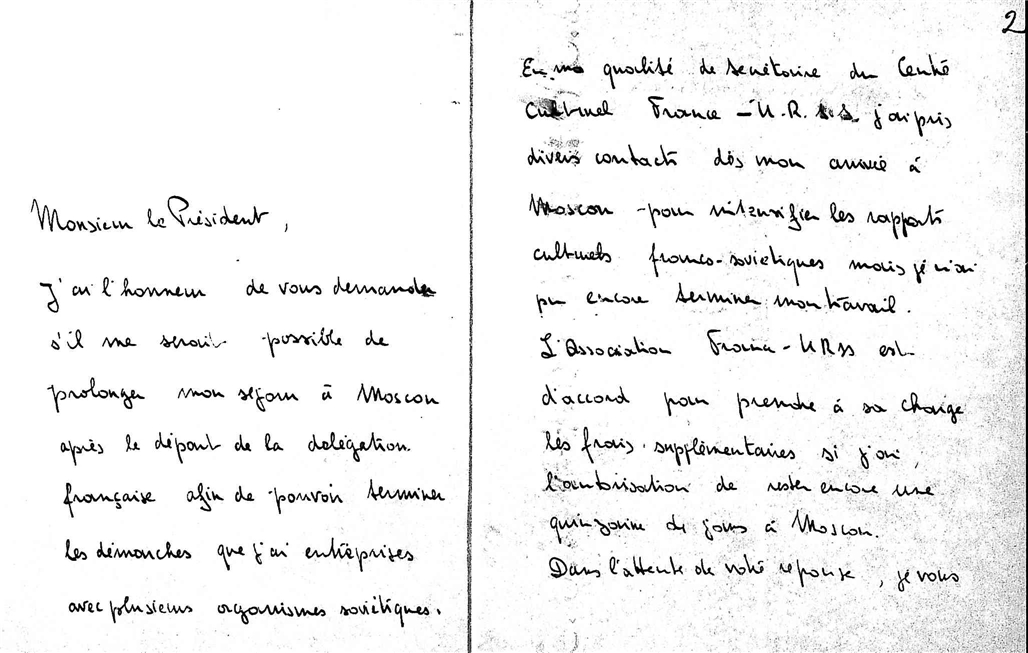 Monsieur le Président,
J'ai l'honneur de vous demander
s'il me serait possible de
prolonger mon séjour à Moscou
après le départ de la délégation
française afin de pouvoir terminer
les démarches que j'ai entreprises
avec plusieurs organismes soviétiques.
2
En ma qualité de secrétaire du Centre
Culturel France - U.R.S.S. j'ai pris
divers contacts dès mon arrivée à
Moscou pour intensifier les rapports
culturels franco-soviétiques mais je n'ai
pu encore terminer mon travail.
L'Association France-URSS est
d'accord pour prendre à sa charge
les frais supplémentaires si j'ai
l'autorisation de rester encore une
quinzaine de jours à Moscou.
Dans l'attente de votre réponse, je vous